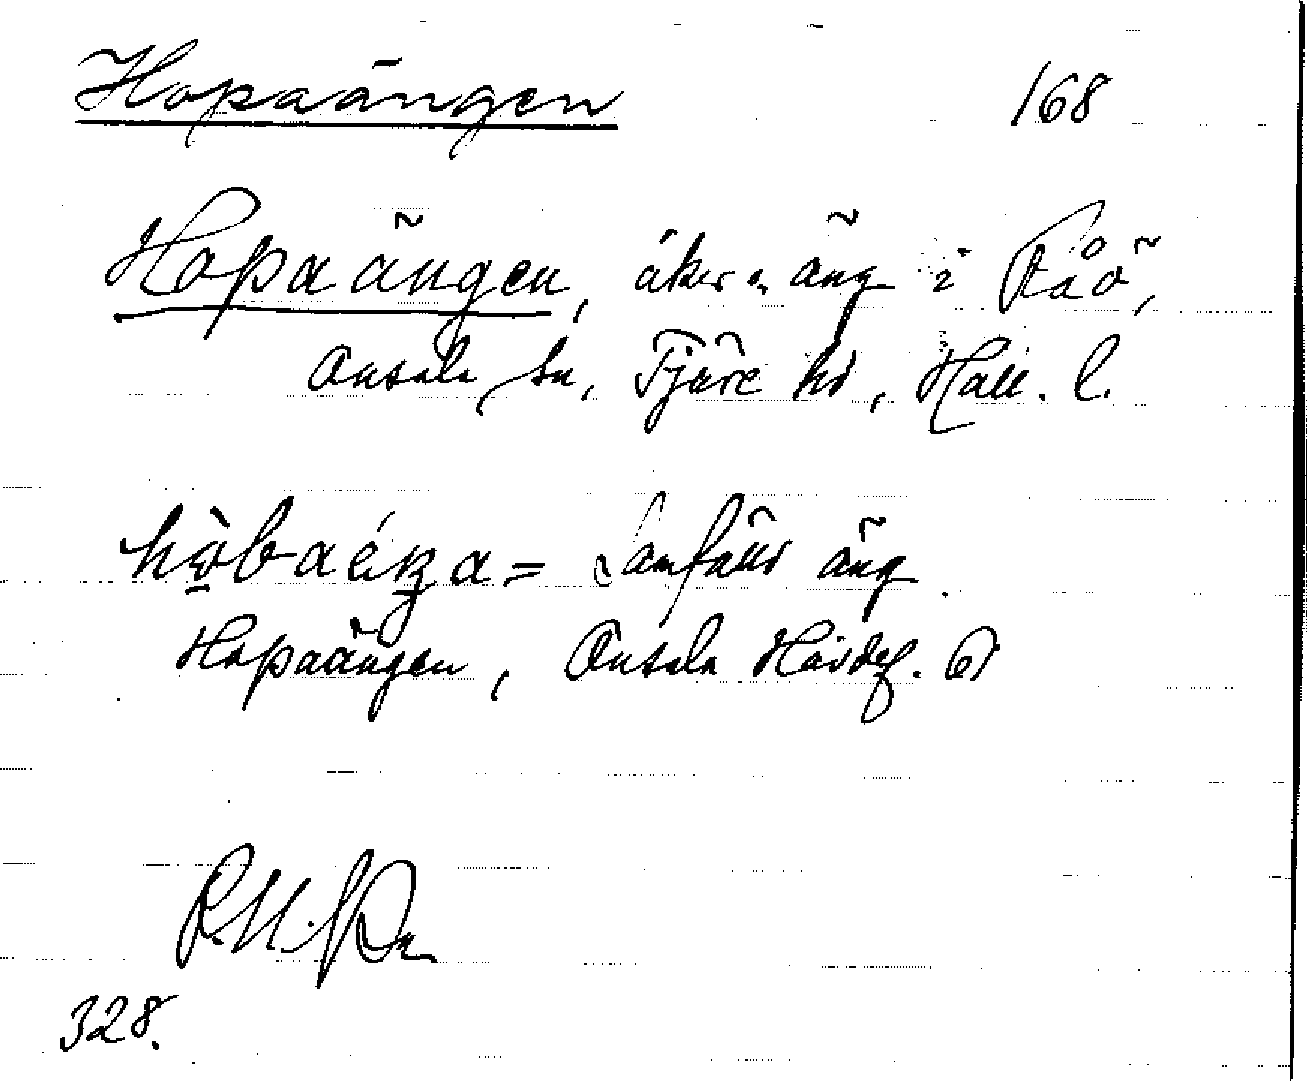 Hopaängen 168
Hopaängen, åker o. äng i Råö,
Onsala sn, Fjäre hd, Hall. l.
Samfälld äng.
Hopaängen, Onsala Hävdef. 61
328.